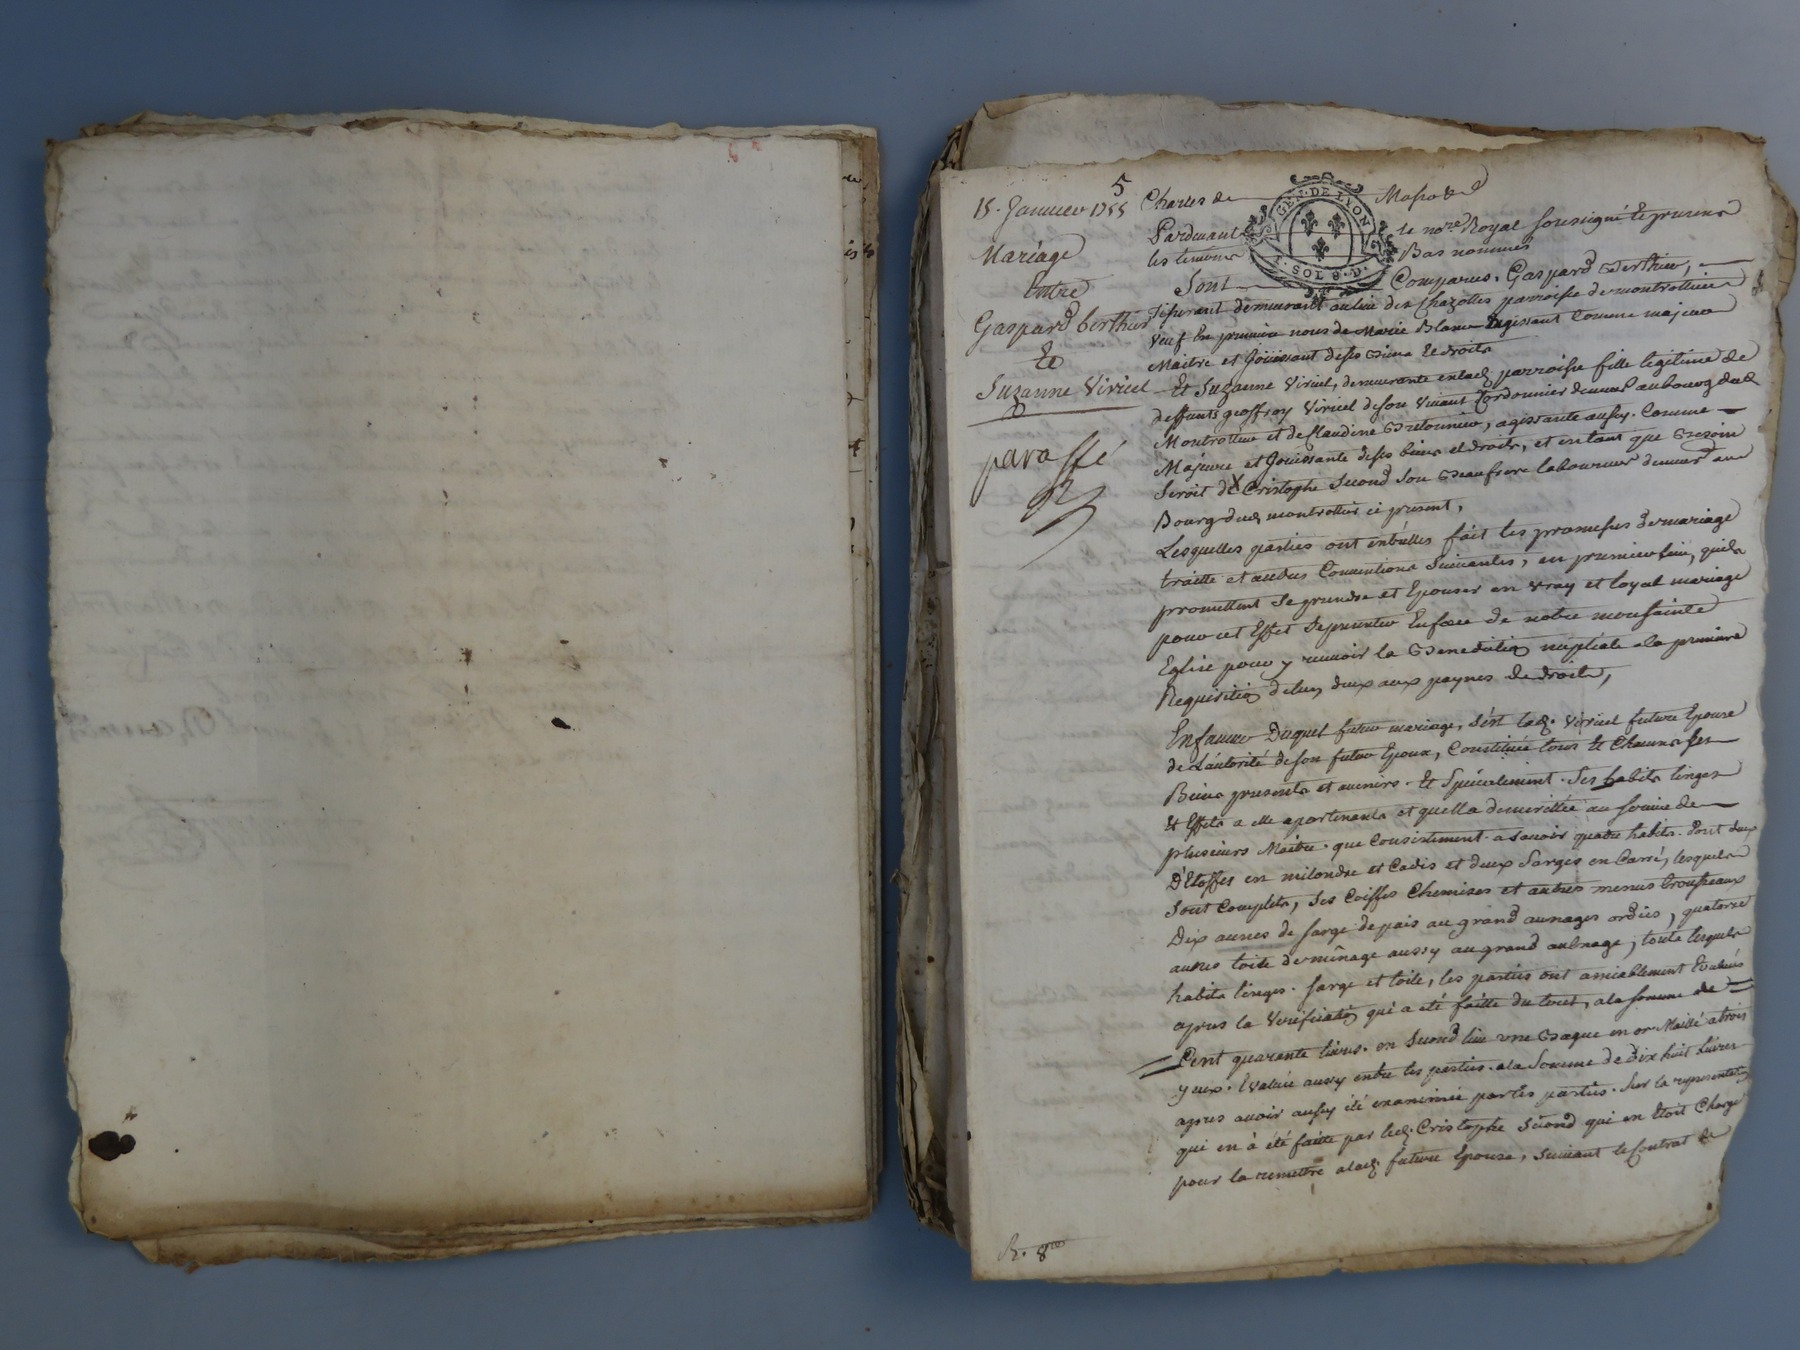 5
15. Janvier 1755
Mariage
Entre
Gaspard berthier
Et
Suzanne Viricel
paraffé
Charles de
GEN. DE LYON
I. SOL 8. D.
Pardevant le nore Royal soussigné Et presens
les temoins Bas nommés
Sont Comparus, Gaspard Berthier,
Tisserant demeurant au lieu des Chazottes parroisse de montrottier
Veuf En premiere noces de Marie Blanc agissant Comme majeur
Maitre et Joüissant de ses Biens Et droits
Et Suzanne Viricel, demeurante en lad. parroisse fille legitime de
deffunts geoffray Viricel de son Vivant Cordonnier demeur au bourg dud
Montrottier et de Claudine agissante aussy Comme
Majeure et Joüissante de ses biens et droits, et en tant que Besoin
Seroit de Cristophe Second son Beaufrere laboureur demeur au
Bourg dud. montrottier ci present,
Lesquelles parties ont entr'elles fait les promesses de mariage
traitté et autres Conventions Suivantes, en premier lieu, quils
promettent Se prendre et Epouser en Vray et loyal mariage
pour cet Effet Se presenter En face de notre mere sainte
Eglise pour y recevoir la Benediction nuptiale a la premiere
Requisition delun deux aux peynes de droits,
En faveur Duquel futur mariage, s'est lad. Viricel future Epouse
de L'autorité de son futur Epoux, Constituée tous Et Chacuns ses
Biens presents et avenirs. Et Spécialement. Ses habits linges
Et Effets a elle apartenants et quella au service de
plusieurs Maitres. que Consistement. a savoir quatre habits. dont deux
D'Etoffes en milondre et Cadis et deux Sarges en Carré, lesquels
Sont Complets, Ses Coiffes Chemises et autres menus trousseaux
Dix aunes de sarge de païs au grand aunages ordies, quatorze
aunes toile de mênage aussy au grand aulnage, toute lesquels
habits linges. sarge et toile, les parties ont amiablement Evalués
apres la Verification qui a eté faitte du tout, a la somme de
Cent quarante livres. en Second lieu vne Bague en or Maillé a trois
yeux. Evaluée aussy entre les parties a la Somme de Dix huit livres
apres avoir aussy été examinée par les parties. Sur la representation
qui en à été faitte par led. Cristophe Second qui en Etoit Chargé
pour la remettre a lad. future Epouse, Suivant le Contrat de
R. 8